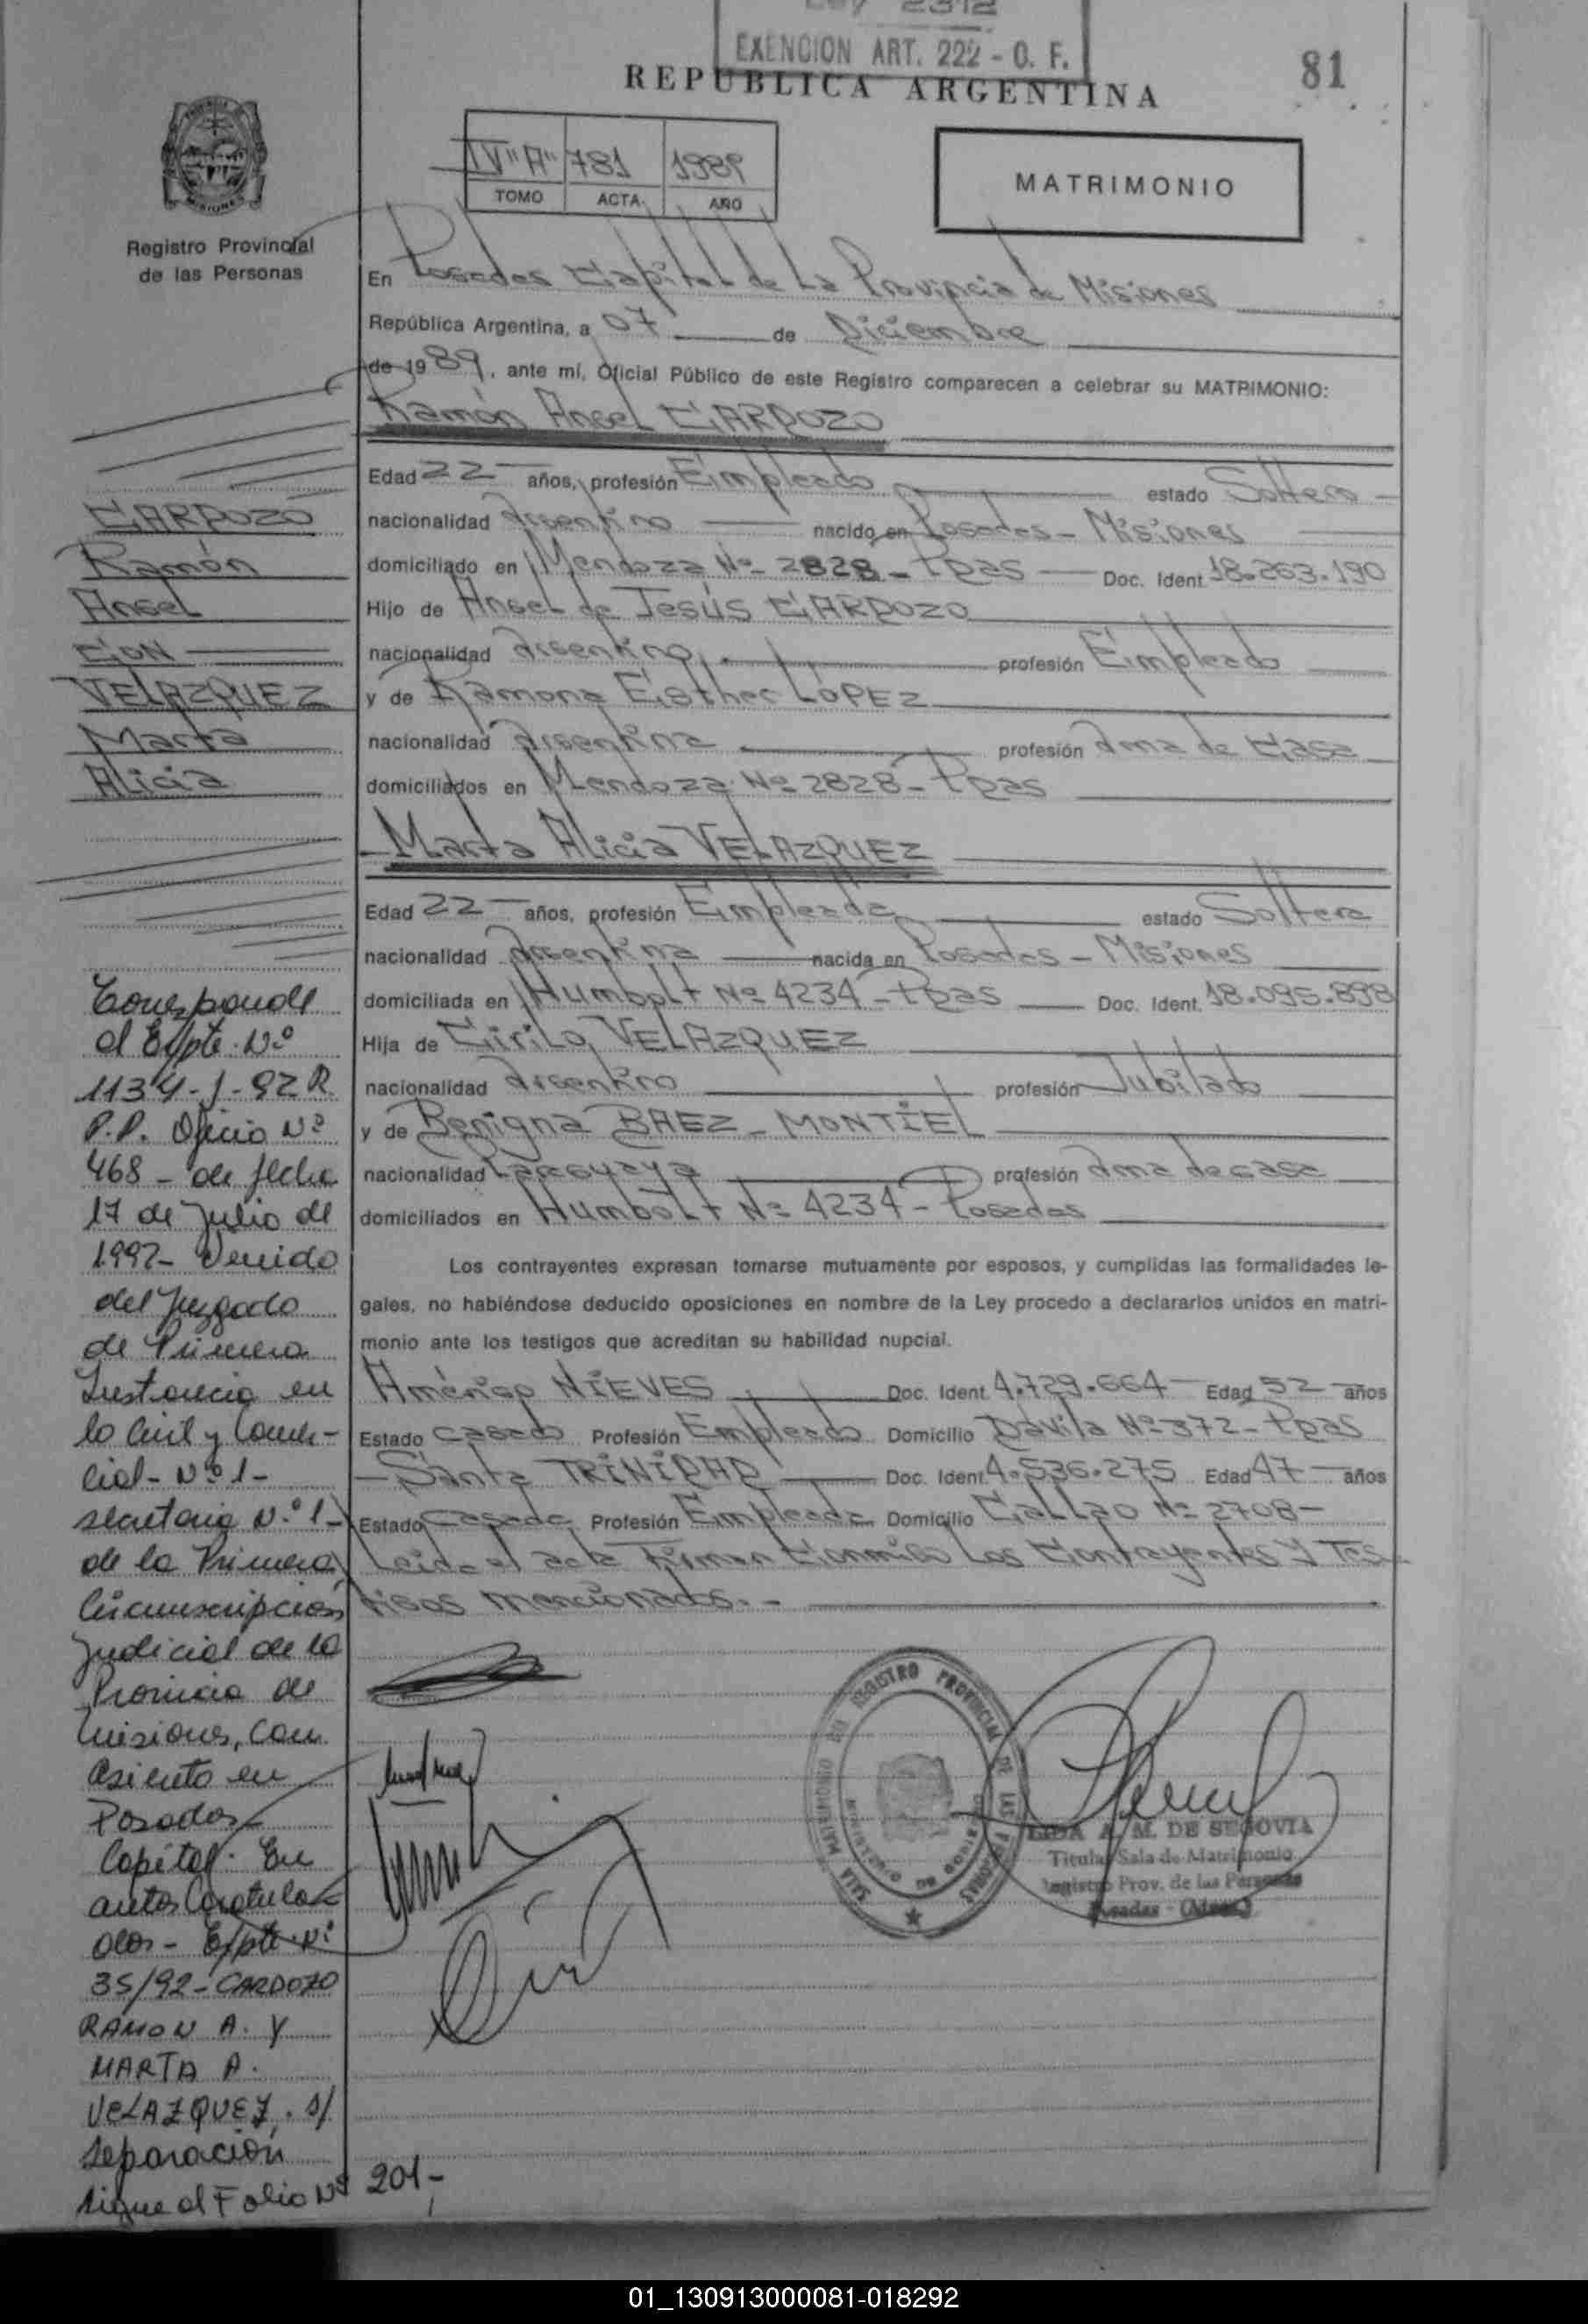 Ley 2312
EXENCION ART. 222 - O. F.
REPUBLICA ARGENTINA
81
IV"A" 781 1989
TOMO ACTA AÑO
MATRIMONIO
MISIONES
Registro Provincial
de las Personas
En Posadas Capital de La Provincia de Misiones
República Argentina, a 07 de Diciembre
de 1989, ante mí, Oficial Público de este Registro comparecen a celebrar su MATRIMONIO:
Ramón Angel CARDOZO
Edad 22 años, profesión Empleado estado Soltero
nacionalidad Argentino nacido en Posadas - Misiones
domiciliado en Mendoza Nº 2828 - Pdas Doc. Ident. 18.263.190
Hijo de Angel de Jesús CARDOZO
nacionalidad Argentino profesión Empleado
y de Ramona Esther LOPEZ
nacionalidad Argentina profesión Ama de Casa
domiciliados en Mendoza Nº 2828 - Pdas
Marta Alicia VELAZQUEZ
Edad 22 años, profesión Empleada estado Soltera
nacionalidad Argentina nacida en Posadas - Misiones
domiciliada en Humbolt Nº 4234 - Pdas Doc. Ident. 18.095.898
Hija de Cirilo VELAZQUEZ
nacionalidad Argentino profesión Jubilado
y de Benigna BAEZ - MONTIEL
nacionalidad Paraguaya profesión Ama de casa
domiciliados en Humbolt Nº 4234 - Posadas
Los contrayentes expresan tomarse mutuamente por esposos, y cumplidas las formalidades le-
gales, no habiéndose deducido oposiciones en nombre de la Ley procedo a declararlos unidos en matri-
monio ante los testigos que acreditan su habilidad nupcial.
Américo NIEVES Doc. Ident. 4.729.664 Edad 52 años
Estado Casado Profesión Empleado Domicilio Davila Nº 372 - Pdas
Santa TRINIDAD Doc. Ident. 4.536.275 Edad 47 años
Estado Casada Profesión Empleada Domicilio Callao Nº 2708 -
Leida el acta Firman Conmigo Los Contrayentes y Tes-
tigos mencionados. -
CARDOZO
Ramón
Angel
CON
VELAZQUEZ
Marta
Alicia
Corresponde
al Expte. Nº
1134-J-92 R.
P.P. Oficio Nº
468 - de fecha
17 de Julio de
1992 - Venido
del Juzgado
de Primera
Instancia en
lo Civil y Comer-
cial - Nº 1 -
secretaria N.º 1 -
de la Primera
Circunscripcion
Judicial de la
Provincia de
Misiones, con
asiento en
Posadas
Capital. En
autos Caratula-
dos - Expte Nº
35/92 - CARDOZO
RAMON A. Y
MARTA A.
VELAZQUEZ. s/
separación
sigue al Folio Nº 201 -
REGISTRO PROVINCIAL DE LAS PERSONAS
SALA MATRIMONIO
MINISTERIO DE GOBIERNO
LIDA A. M. DE SEGOVIA
Titular Sala de Matrimonio
Registro Prov. de las Personas
Posadas - (Mnes.)
01_130913000081-018292